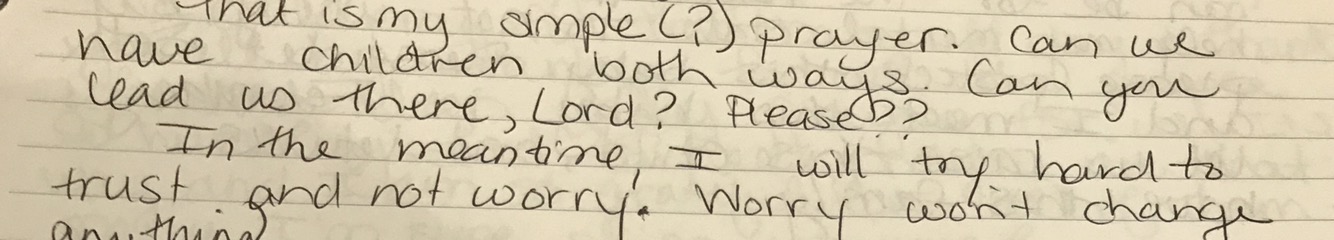 That is my simple (?) prayer. Can we
have children both ways. Can you
lead us there, Lord? Please??
In the meantime, I will try hard to
trust and not worry. Worry won't change
anything